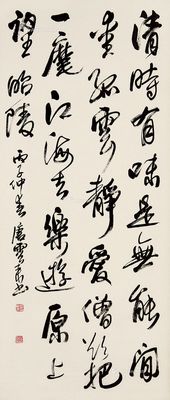 清時有味是無能閒
愛孤雲靜愛僧欲把
一麾江海去樂遊原上
望昭陵
丙子仲春唐雲來書